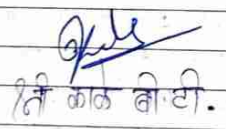 श्री काळे बी.टी.